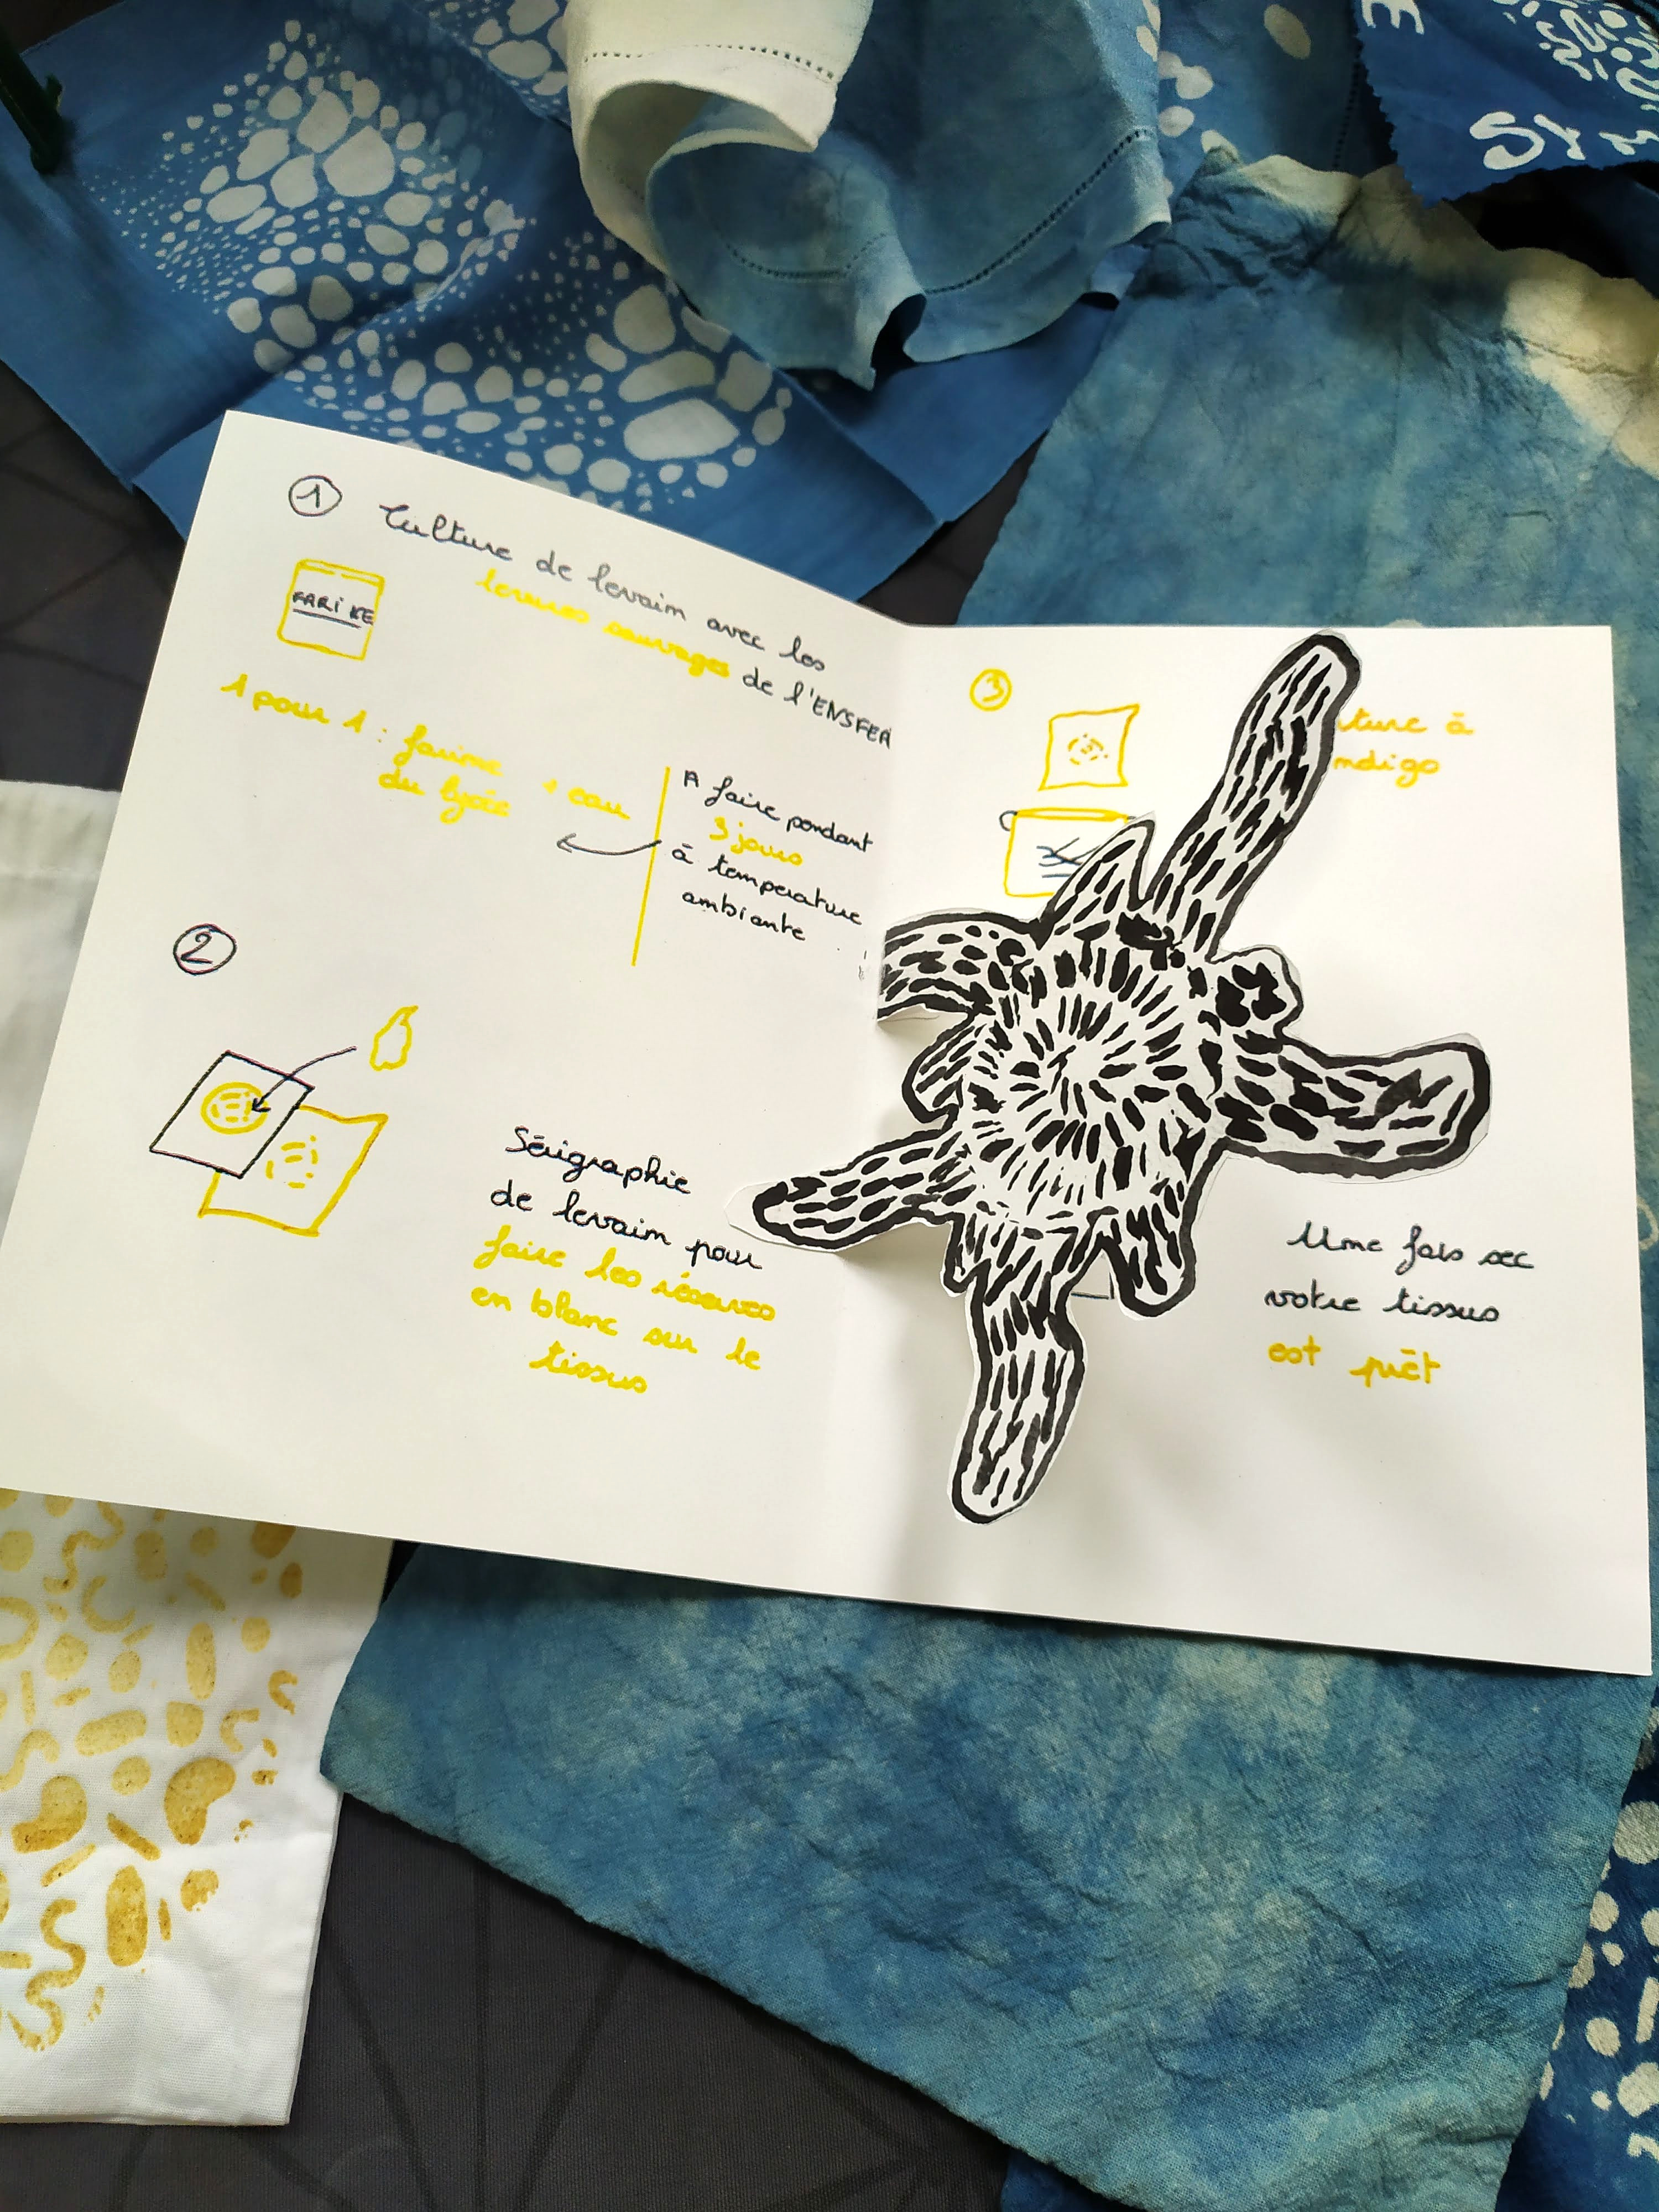 1 Culture de levain avec les
levures sauvages de l'ENSFEA
FARINE
1 pour 1 : farine
du lycée
+ eau
A faire pendant
3 jours
à température
ambiante
2
Sérigraphie
de levain pour
faire les réserves
en blanc sur le
tissus
3
ture à
ndigo
Une fois sec
votre tissus
est prêt
SYM